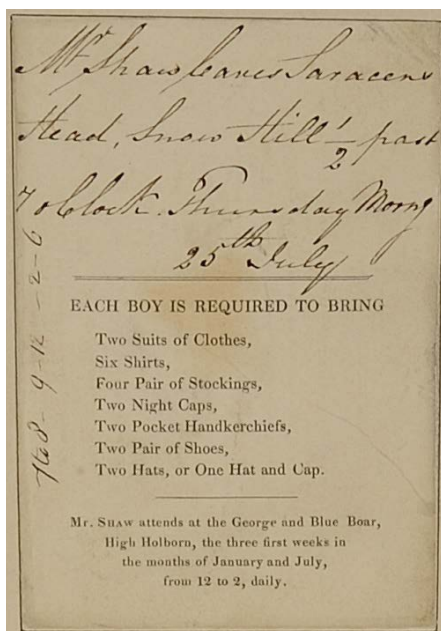 Mr Shaw leaves Saracens
Head, Snow Hill 1/2 past
7 oClock. Thursday Morng
25th July
EACH BOY IS REQUIRED TO BRING
Two Suits of Clothes,
Six Shirts,
Four Pair of Stockings,
Two Night Caps,
Two Pocket Handkerchiefs,
Two Pair of Shoes,
Two Hats, or One Hat and Cap.
Mr. SHAW attends at the George and Blue Boar,
High Holborn, the three first weeks in
the months of January and July,
from 12 to 2, daily.
9-12-2-6